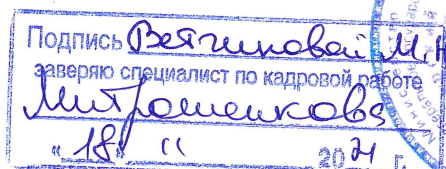 Подпись Ветчиновой М.Н
заверяю специалист по кадровой работе
Митрошенкова
"18" 11 2021 г.